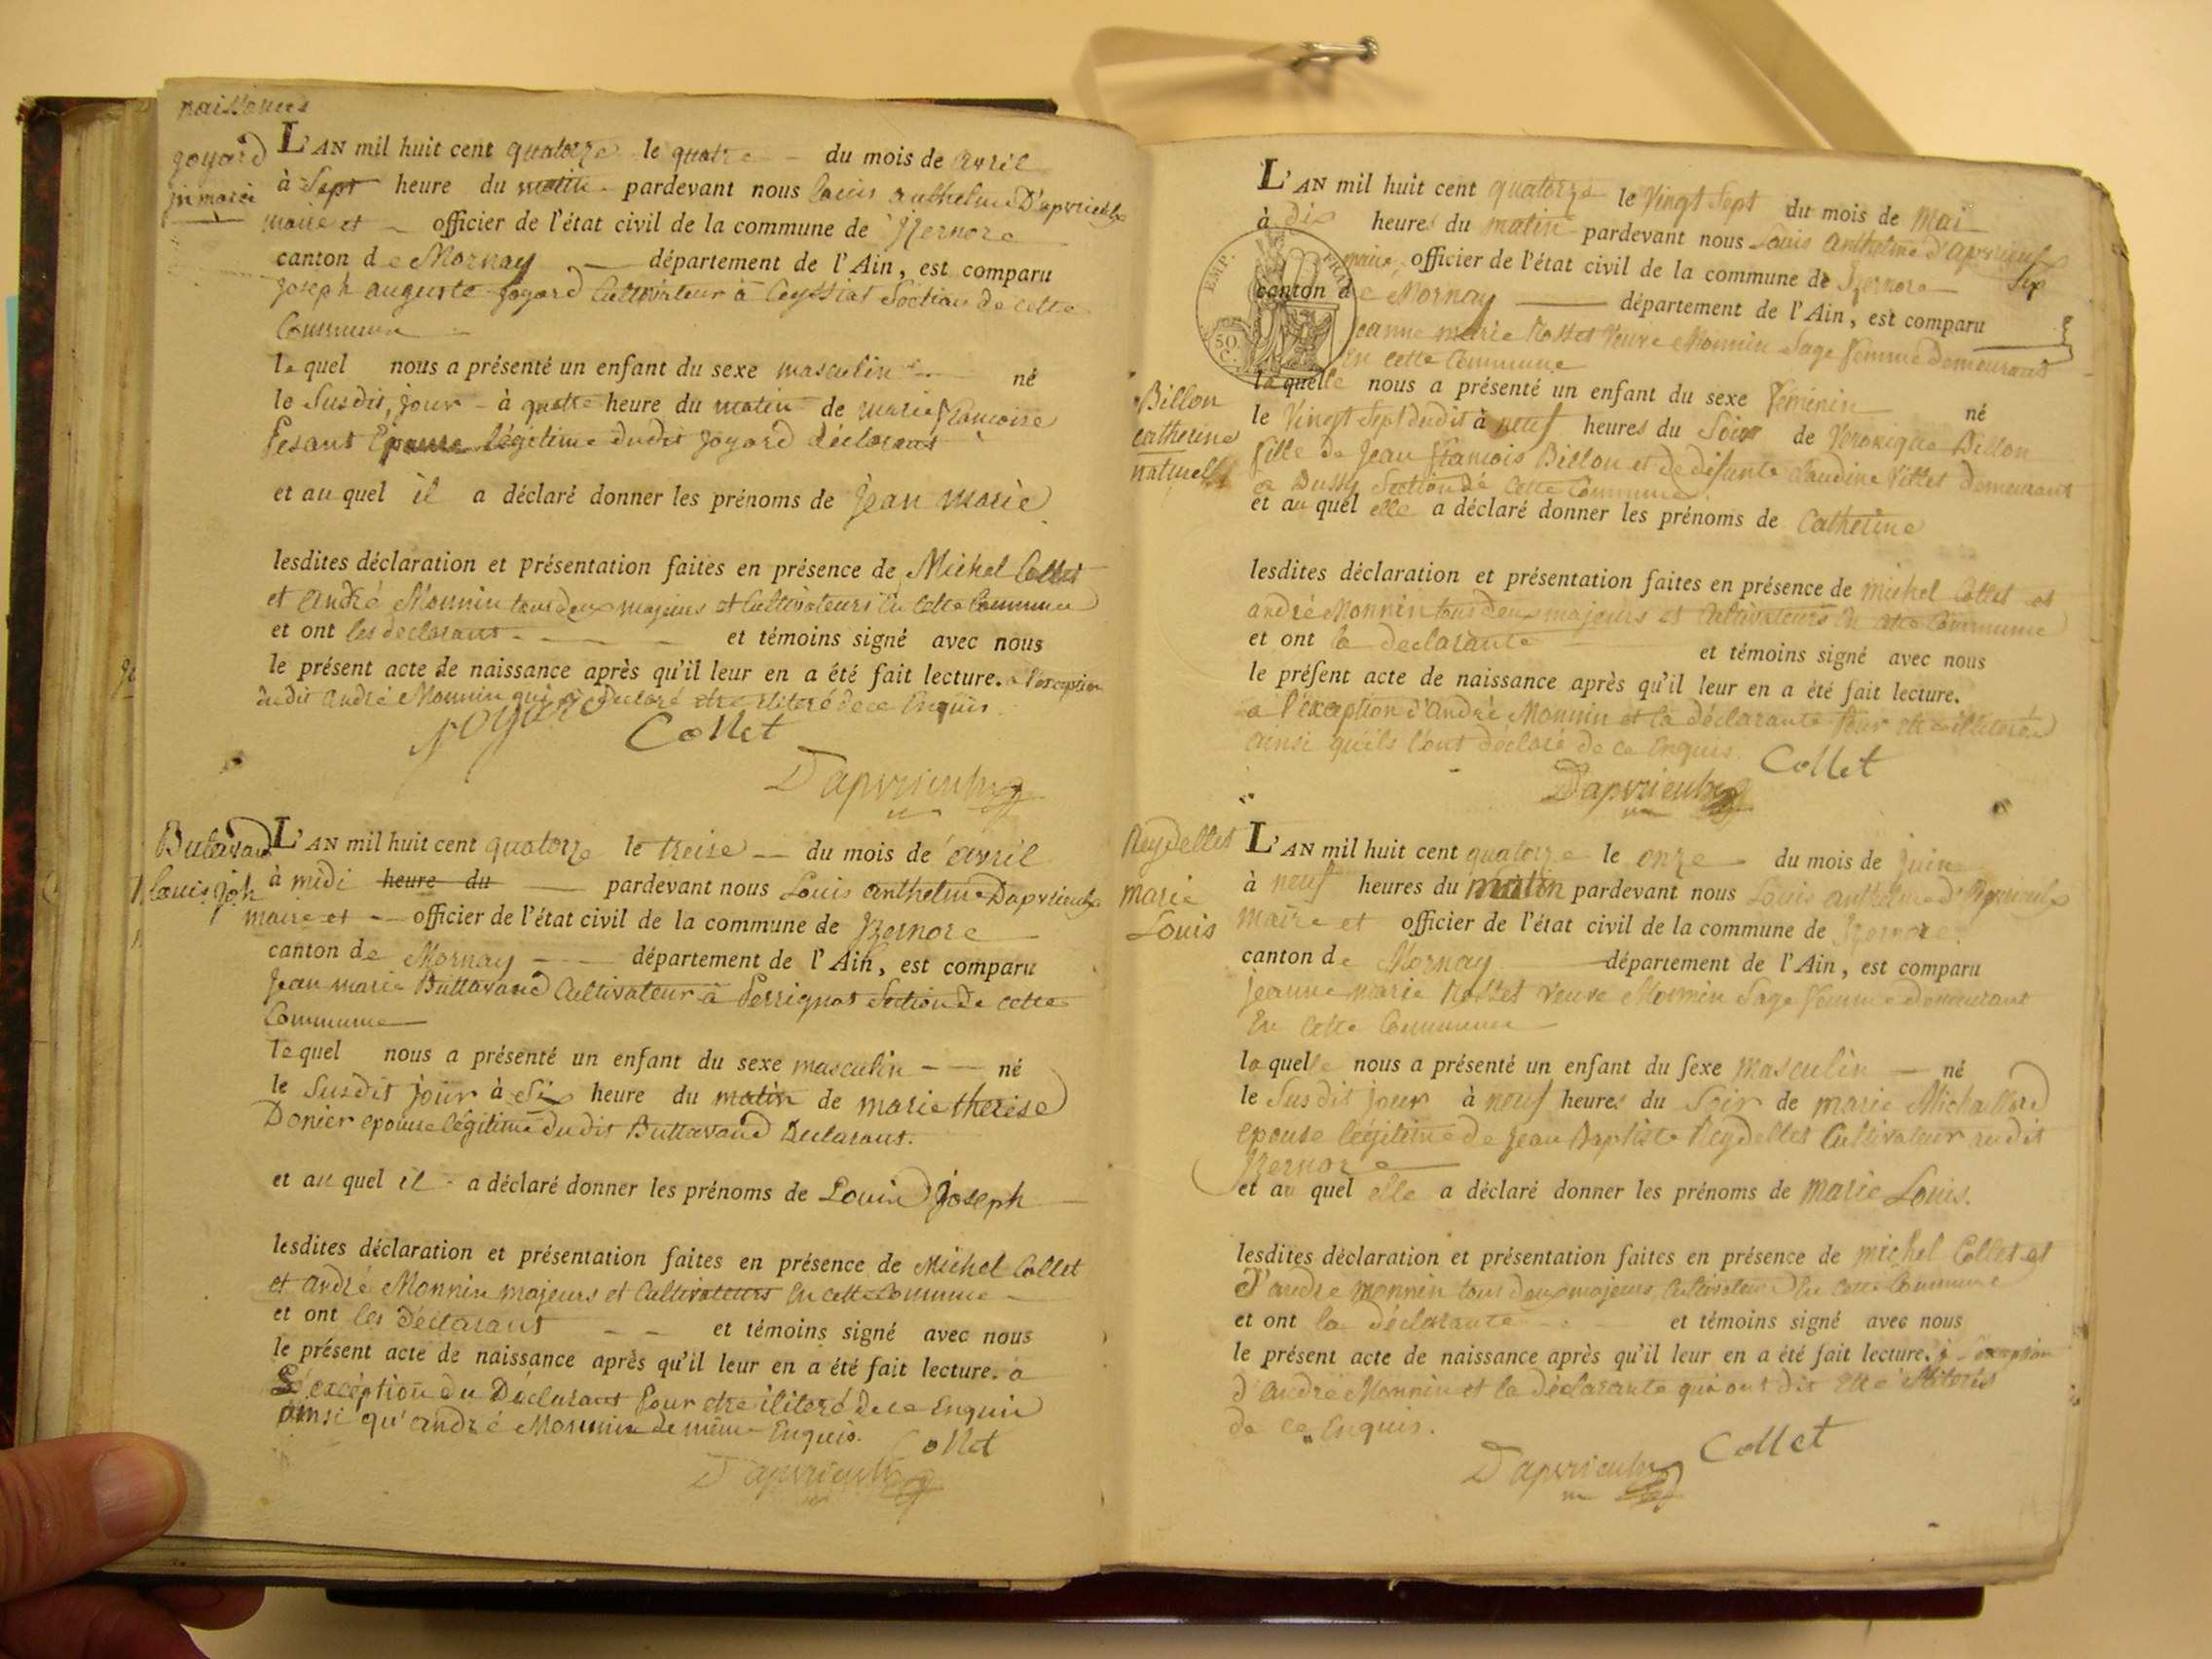 naissances
goyard
jn marie
L'AN mil huit cent quatorze le quatre du mois de avril
à Sept heure du matin pardevant nous Louis anthelme D'apvrieulx
maire et officier de l'état civil de la commune de Izernore
canton de Mornay département de l'Ain, est comparu
Joseph auguste goyard Cultivateur à Ceyssiat Section de cette
Commune
lequel nous a présenté un enfant du sexe masculin né
le Susdit, jour à quatre heure du matin de marie françoise
Pesant Epouse légitime dudit goyard déclarant
et au quel il a déclaré donner les prénoms de Jean Marie
lesdites déclaration et présentation faites en présence de Michel Collet
et André Monnin tous deux majeurs et Cultivateurs En cette Commune
et ont les declarant et témoins signé avec nous
le présent acte de naissance après qu'il leur en a été fait lecture. a l'exception
du dit André Monnin qui a déclaré etre iliteré de ce Enquis
goyard Collet
D'apvrieulx
Butavand
Louis Jph
L'AN mil huit cent quatorze le treise du mois de avril
à midi heure du pardevant nous Louis anthelme Dapvrieulx
maire et officier de l'état civil de la commune de Izernore
canton de Mornay département de l'Ain, est comparu
Jean marie Buttavand Cultivateur à Perrignat Section de cette
Commune
lequel nous a présenté un enfant du sexe masculin né
le Susdit jour à Six heure du matin de marie therèse
Donier epouse légitime du dit Buttavand Déclarant.
et au quel il a déclaré donner les prénoms de Louis Joseph
lesdites déclaration et présentation faites en présence de Michel Collet
et André Monnin majeurs et Cultivateurs En cette Commune
et ont les Déclarant et témoins signé avec nous
le présent acte de naissance après qu'il leur en a été fait lecture. a
L'exception du Déclarant Pour etre iliteré de ce Enquis
ainsi qu'andré Monnin de même Enquis.
Collet
D'apvrieulx
L'AN mil huit cent quatorze le Vingt Sept du mois de Mai
à dix heures du matin pardevant nous Louis Anthelme d'apvrieulx
maire, officier de l'état civil de la commune de Izernore
canton de Mornay département de l'Ain, est comparu
EMP. FRAN.
50 C.
jeanne marie Rosset Veuve Monnin Sage femme demeurant
En cette Commune
Billon
catherine
naturelle
laquelle nous a présenté un enfant du sexe féminin né
le Vingt Sept dudit à neuf heures du Soir de Veronique Billon
fille de Jean françois Billon et de défunte Claudine Villet demeurant
a Bussy Section de cette Commune
et au quel elle a déclaré donner les prénoms de Catherine
lesdites déclaration et présentation faites en présence de Michel Collet et
andré Monnin tous deux majeurs et Cultivateurs En cette Commune
et ont la declarante et témoins signé avec nous
le présent acte de naissance après qu'il leur en a été fait lecture.
a l'exception d'André Monnin et la déclarante Pour etre illiterés
ainsi qu'ils l'ont déclaré de ce Enquis. Collet
Dapvrieulx
Reydellet
marie
Louis
L'AN mil huit cent quatorze le onze du mois de juin
à neuf heures du matin pardevant nous Louis anthelme d'Apvrieulx
Maire et officier de l'état civil de la commune de Izernore
canton de Mornay département de l'Ain, est comparu
jeanne marie Rosset Veuve Monnin Sage femme demeurant
En cette Commune
laquelle nous a présenté un enfant du sexe Masculin né
le Susdit jour à neuf heures du Soir de marie Michallard
epouse légitime de Jean Baptiste Reydellet Cultivateur audit
Izernore
et au quel elle a déclaré donner les prénoms de Marie Louis.
lesdites déclaration et présentation faites en présence de michel Collet et
d'andré Monnin tous deux majeurs, Cultivateurs En cette Commune
et ont la déclarante et témoins signé avec nous
le présent acte de naissance après qu'il leur en a été fait lecture. exception
d'andré Monnin et la déclarante qui ont dit etre illiterés
de ce Enquis.
Dapvrieulx Collet